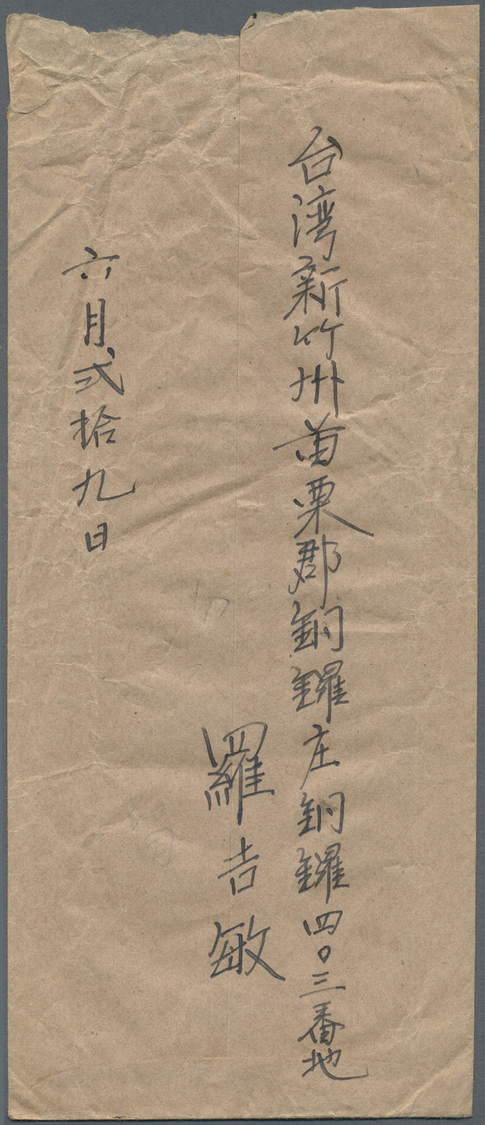 台湾新竹州苗栗郡銅鑼庄銅鑼四〇三番地
羅吉敏
六月弐拾九日